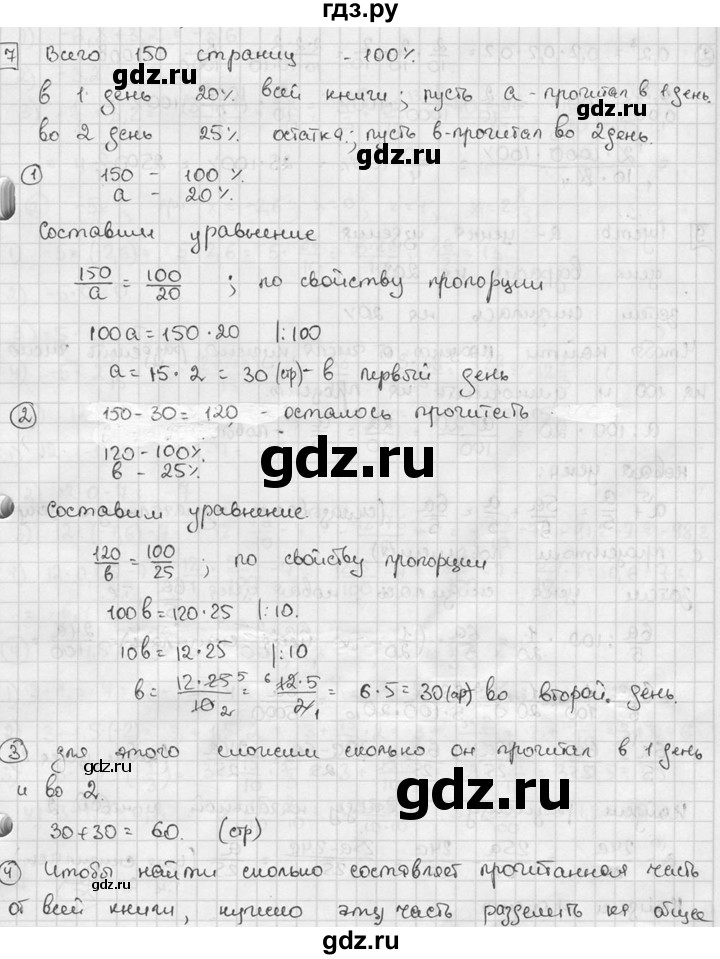 гдз.ру
7 Всего 150 страниц - 100%.
в 1 день 20% всей книги; пусть а - прочитал в 1 день.
во 2 день 25% остатка; пусть в - прочитал во 2 день.
gdz.ru
gdz.ru
1 150 - 100%.
а - 20%.
Составим уравнение
150/а = 100/20 ; по свойству пропорции
gdz.ru
100а = 150 · 20 |:100
а = 15 · 2 = 30 (стр) - в первый день
2 150 - 30 = 120 - осталось прочитать
gdz.ru
120 - 100%.
в - 25%.
Составим уравнение.
gdz.ru
120/в = 100/25 ; по свойству пропорции
gdz.ru
100в = 120 · 25 |:10.
10в = 12 · 25 |:10
в = 12 · 25 5/10 2 = 6 12 · 5/2 1 = 6 · 5 = 30 (стр) во второй день.
gdz.ru
3 для этого сложим сколько он прочитал в 1 день
gdz.ru
и во 2.
gdz.ru
30 + 30 = 60. (стр)
4 Чтобы найти сколько составляет прочитанная часть
gdz.ru
gdz.ru
от всей книги, нужно эту часть разделить на общее
gdz.ru